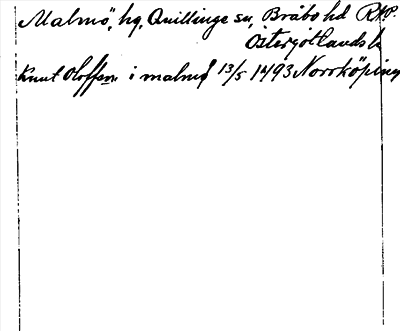 Malmö, hg, Quillinge sn, Bråbo hd RAP.
Östergötlands l.
Knut Oloffson i malmø 13/5 1493 Norrköping